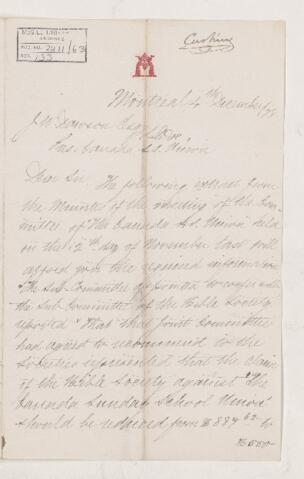 McGILL UNIVERSITY
ARCHIVES
ACC. NO. 2211/63
REF.
Cushing
Montreal 4th December/78
J. W. Dawson Esq
Pres. Canada S.S. Union
Dear Sir The following extract from
the Minutes of the meeting of the Com-
mittee of the Canada S.S. Union held
on the 12th day of November last will
afford you the required information
"The Sub-Committee appointed to confer with
the Sub Committee of the Bible Society
reported "That that Joint Committee
had agreed to recommend to the
Societies represented that the claim
of the Bible Society against "The
Canada Sunday School Union"
should be reduced from $889 62 to
$550